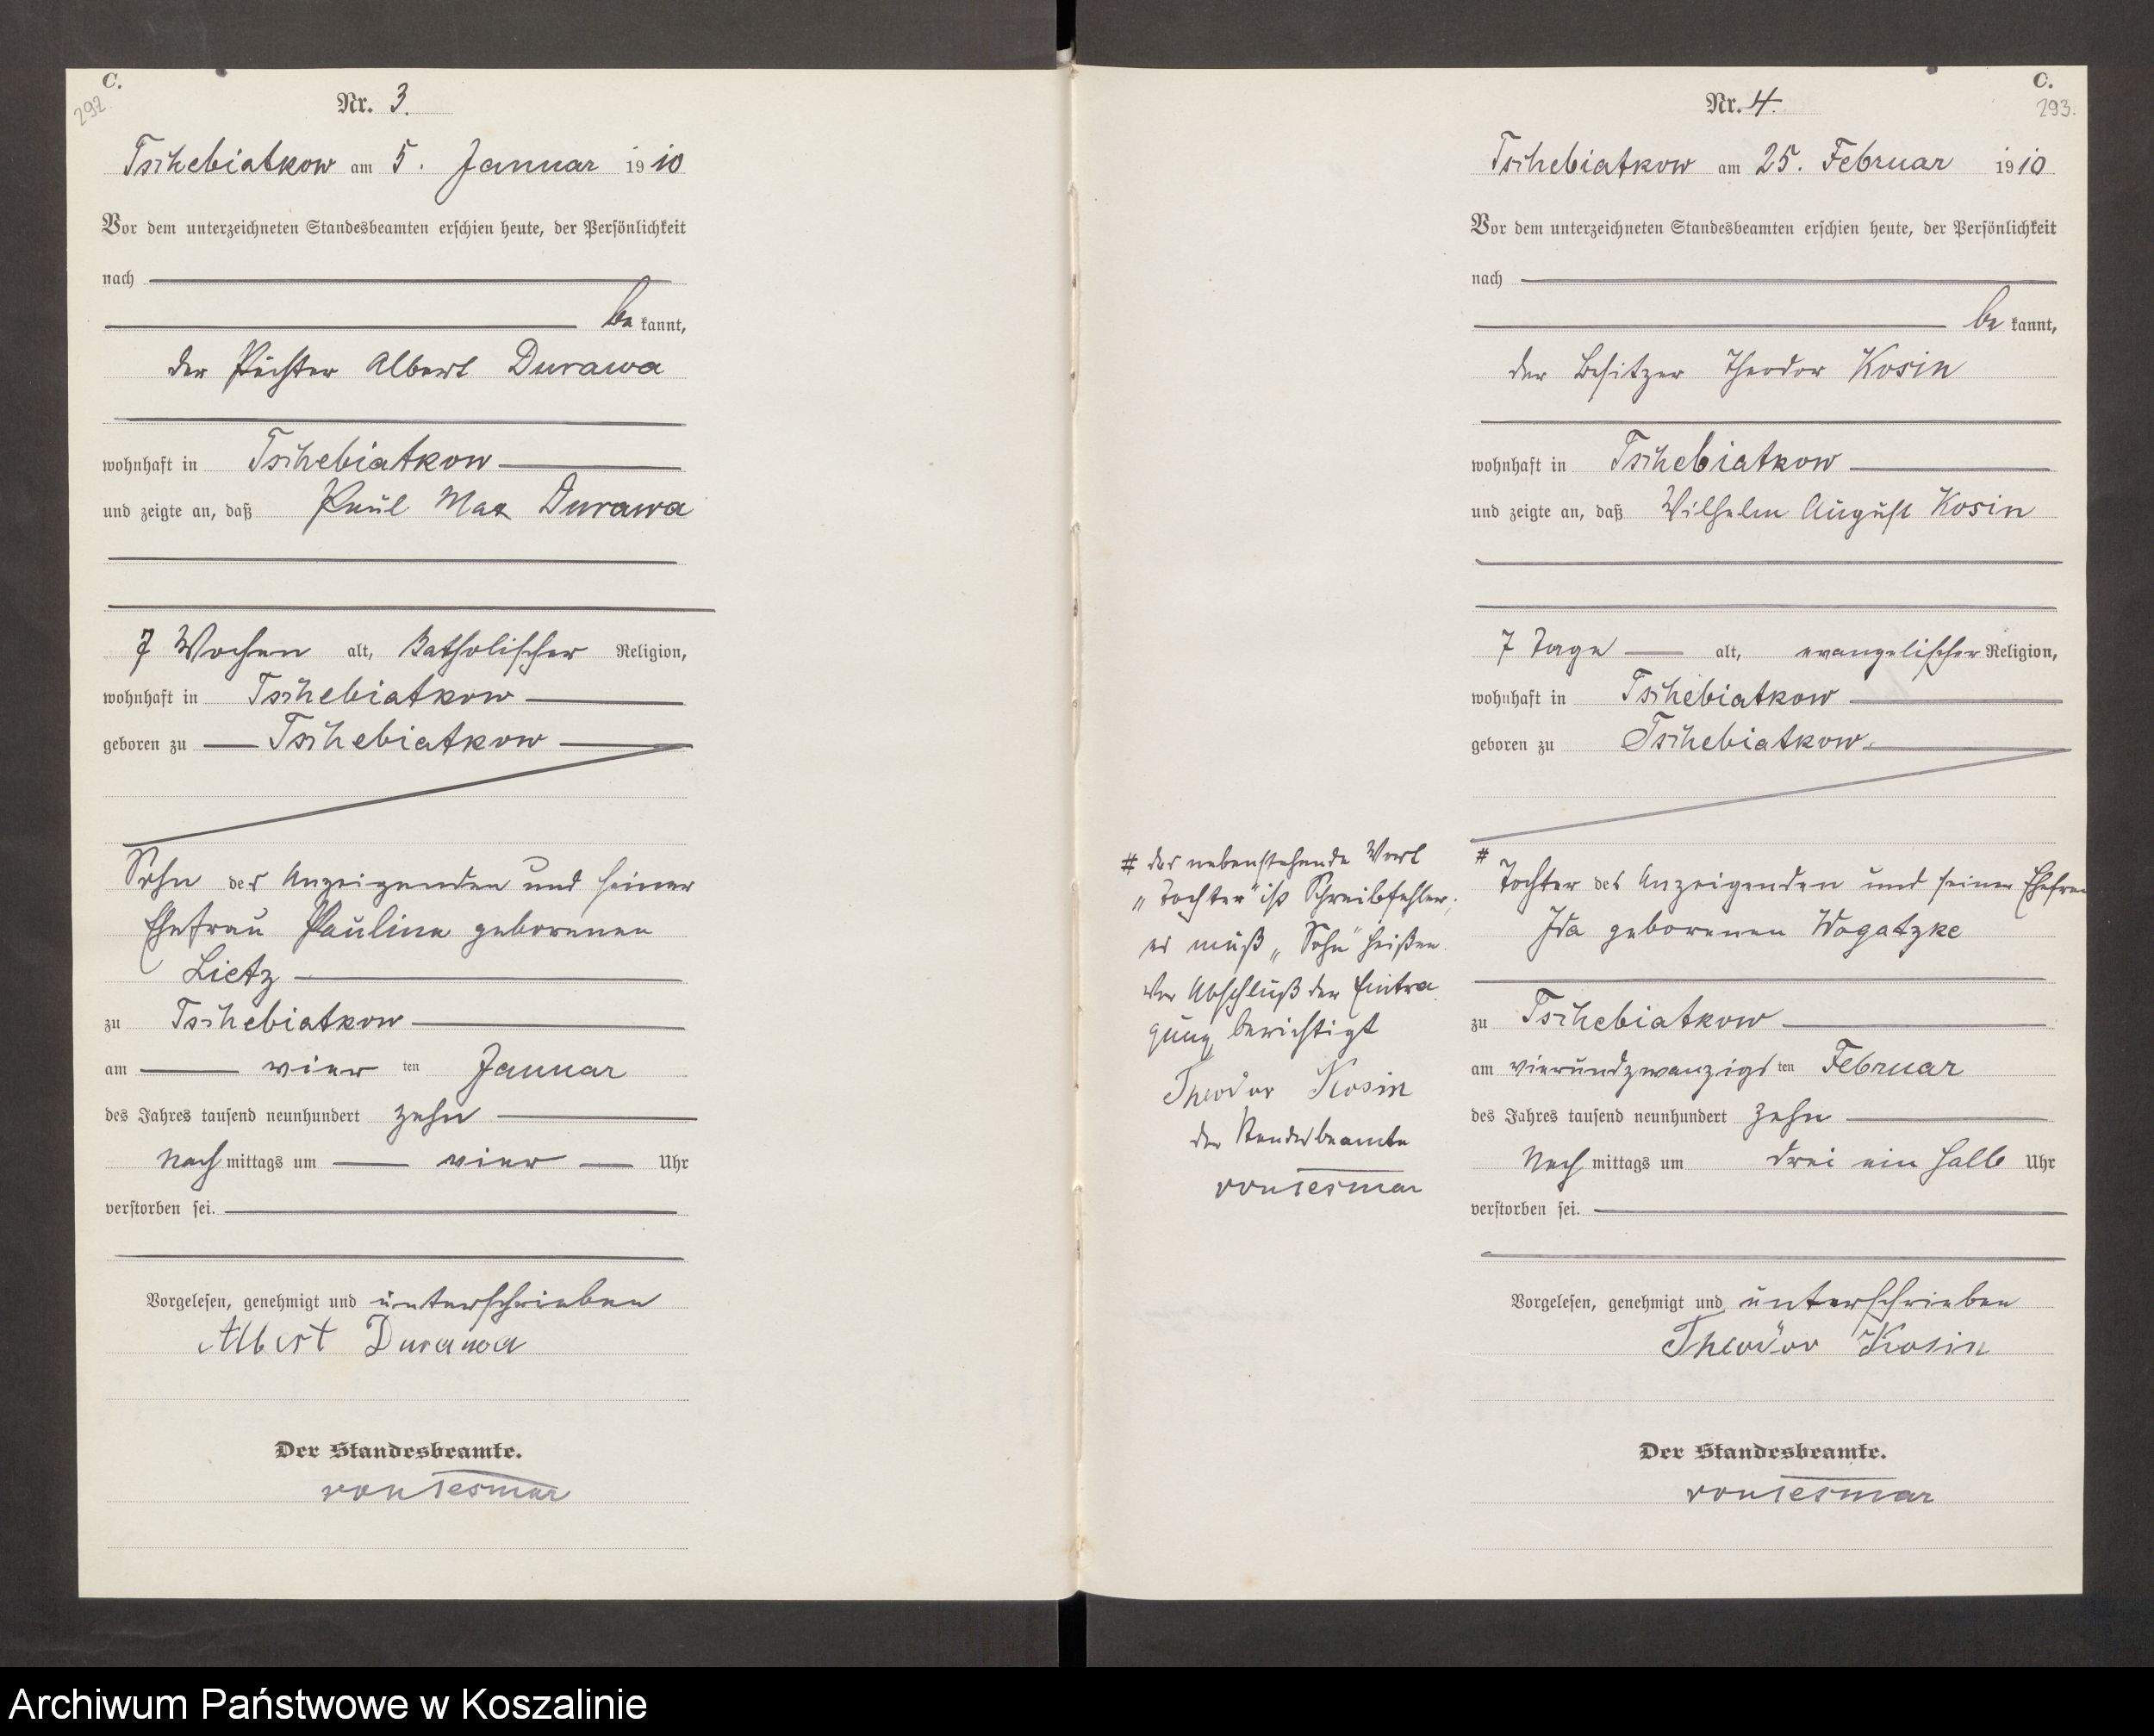 C.
292
Nr. 3.
Tschebiatkow am 5. Januar 1910
Vor dem unterzeichneten Standesbeamten erschien heute, der Persönlichkeit
nach
be kannt,
der Pächter Albert Durawa
wohnhaft in Tschebiatkow
und zeigte an, daß Paul Max Durawa
7 Wochen alt, katholischer Religion,
wohnhaft in Tschebiatkow
geboren zu Tschebiatkow
Sohn des Anzeigenden und seiner
Ehefrau Pauline geborenen
Lietz
zu Tschebiatkow
am vier ten Januar
des Jahres tausend neunhundert zehn
Nach mittags um vier Uhr
verstorben sei.
Vorgelesen, genehmigt und unterschrieben
Albert Durawa
Der Standesbeamte.
von Tesmar
C.
293.
Nr. 4.
Tschebiatkow am 25. Februar 1910
Vor dem unterzeichneten Standesbeamten erschien heute, der Persönlichkeit
nach
be kannt,
der Besitzer Theodor Kosin
wohnhaft in Tschebiatkow
und zeigte an, daß Wilhelm August Kosin
7 Tage alt, evangelischer Religion,
wohnhaft in Tschebiatkow
geboren zu Tschebiatkow.
# Tochter des Anzeigenden und seiner Ehefrau
Ida geborenen Wogatzke
zu Tschebiatkow
am vierundzwanzigs ten Februar
des Jahres tausend neunhundert zehn
Nach mittags um drei ein halb Uhr
verstorben sei.
Vorgelesen, genehmigt und unterschrieben
Theodor Kosin
Der Standesbeamte.
von Tesmar
# das nebenstehende Wort
„Tochter" ist Schreibfehler,
es muß „Sohn" heißen.
Vor Abschluß der Eintra
gung berichtigt
Theodor Kosin
der Standesbeamte
von Tesmar
Archiwum Państwowe w Koszalinie